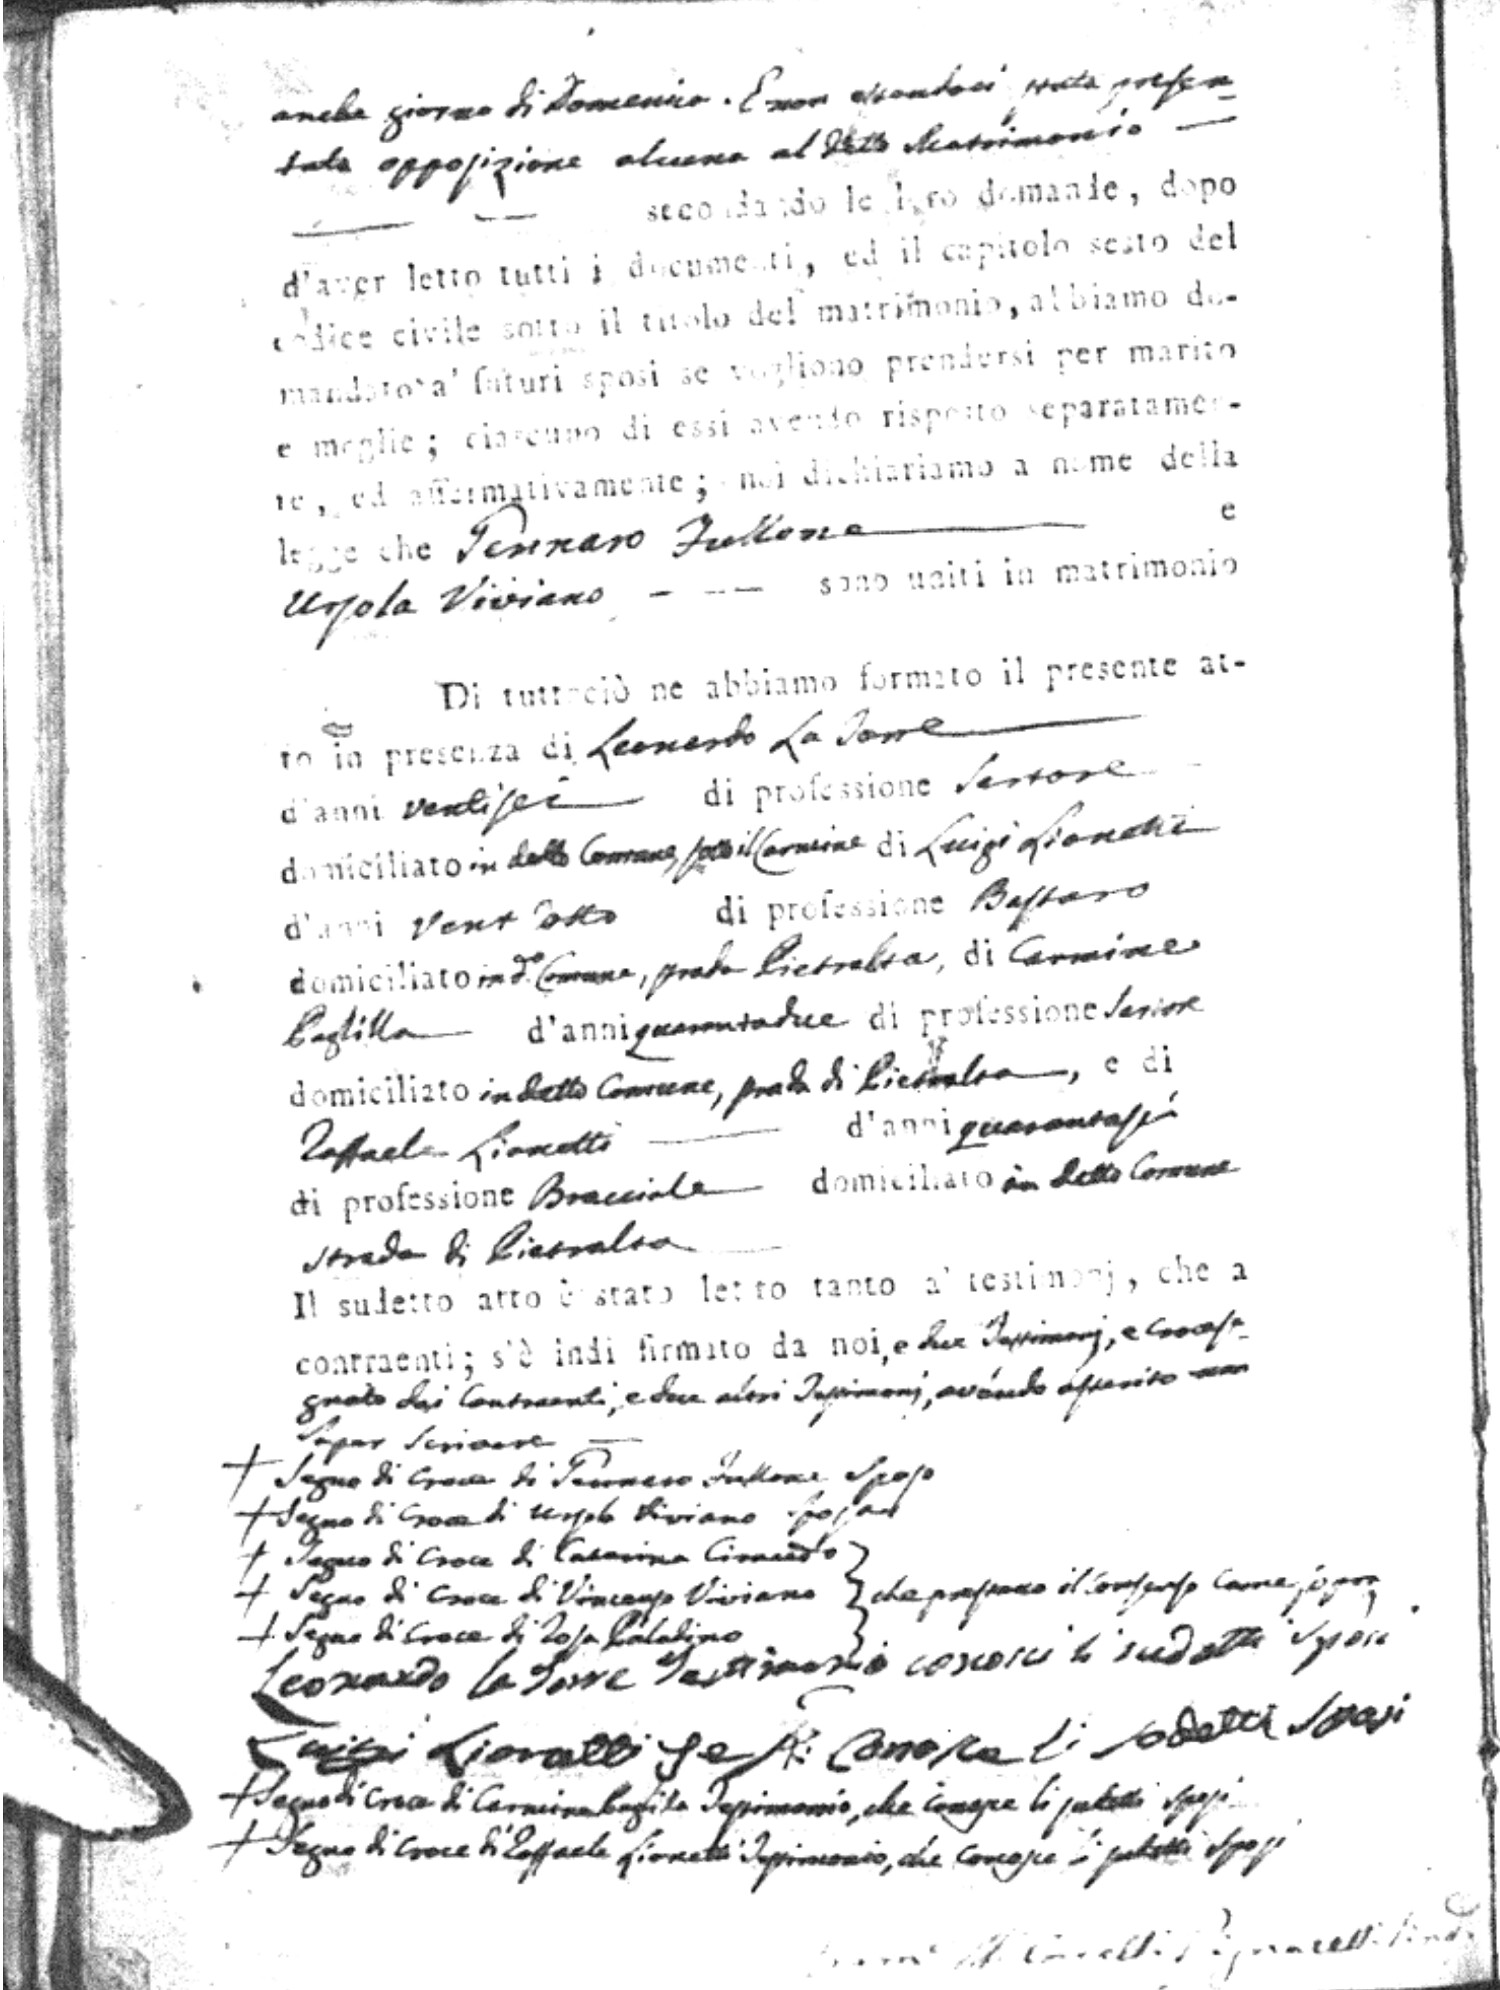 anche giorno di Domenica. E non essendoci stata presen-
tata opposizione alcuna al detto Matrimonio —
secondando le loro domande, dopo
d'aver letto tutti i documenti, ed il capitolo sesto del
codice civile sotto il titolo del matrimonio, abbiamo do-
mandato a' futuri sposi se vogliono prendersi per marito
e moglie; ciascuno di essi avendo risposto separatamen-
te, ed affermativamente; noi dichiariamo a nome della
legge che Gennaro Fullone e
Ursola Viviano - - — sono uniti in matrimonio
Di tuttociò ne abbiamo formato il presente at-
to in presenza di Leonardo La Torre
d'anni ventisei di professione Sartore
domiciliato in detto Comune, sotto il Carmine di Luigi Lionetti
d'anni vent'otto di professione Bastaro
domiciliato in do. Comune, strada Pietralta, di Carmine
Paglilla d'anni quarantadue di professione Sartore
domiciliato in detto Comune, strada di Pietralta, e di
Raffaele Lionetti d'anni quarantasei
di professione Bracciale domiciliato in detto Comune
strada di Pietralta
Il sudetto atto è stato letto tanto a' testimonj, che a
contraenti; s'è indi firmato da noi, e due Testimonj, e crocese-
gnato dai Contraenti, e due altri Testimonj, avendo asserito non
saper scrivere —
+ Segno di Croce di Gennaro Fullone Sposo
+ Segno di Croce di Ursola Viviano Sposa
+ Segno di Croce di Catarina
+ Segno di Croce di Vincenzo Viviano } che prestano il consenso come sopra
+ Segno di Croce di Rosa Paladino
Leonardo la Torre Testimonio conosci li sudetti Sposi
Luigi Lionetti Conosce li sodetti Sposi
+ Segno di Croce di Carmine Paglila Testimonio, che conosce li sudetti Sposi
+ Segno di Croce di Raffaele Lionetti Testimonio, che conosce li sudetti Sposi